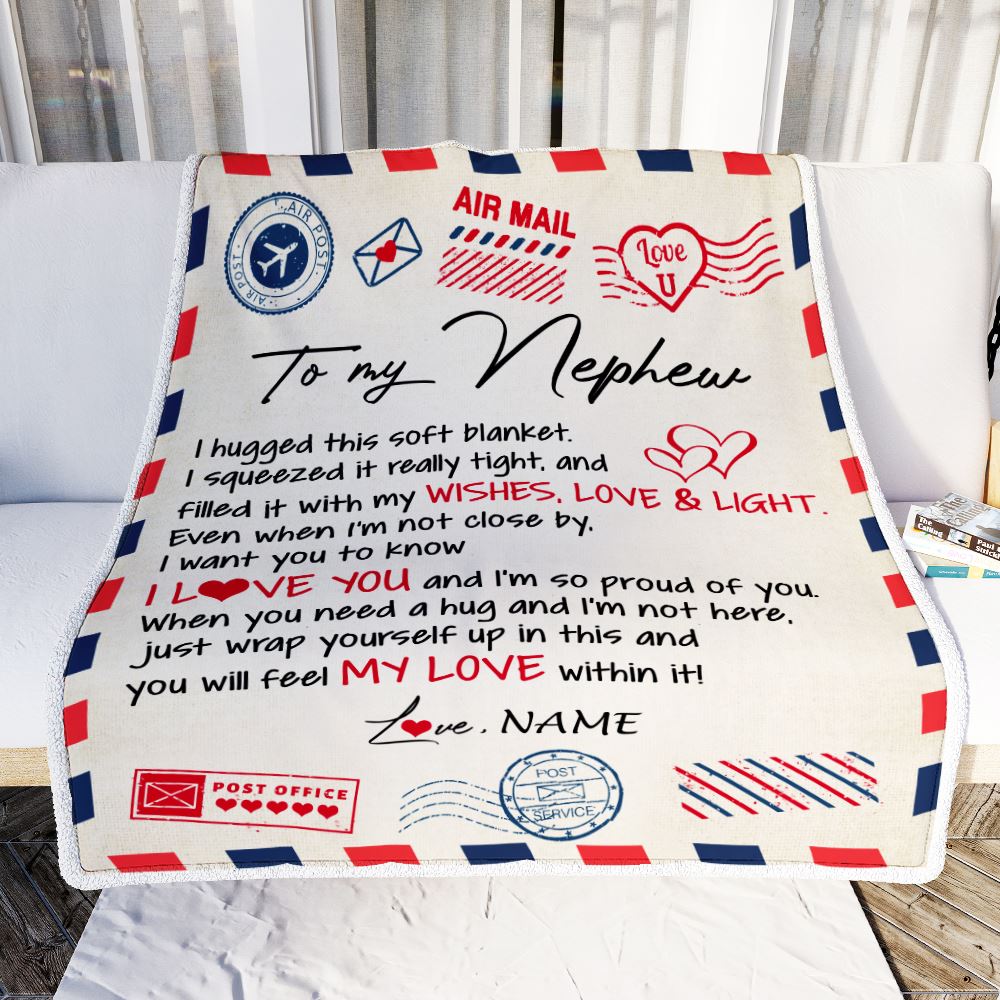 AIR POST
AIR POST
AIR MAIL
Love
U
To my Nephew
I hugged this soft blanket.
I squeezed it really tight, and
filled it with my WISHES, LOVE & LIGHT.
Even when I'm not close by,
I want you to know
I LOVE YOU and I'm so proud of you.
When you need a hug and I'm not here,
just wrap yourself up in this and
you will feel MY LOVE within it!
Love, NAME
POST OFFICE
POST
SERVICE
The
Calling
Paul